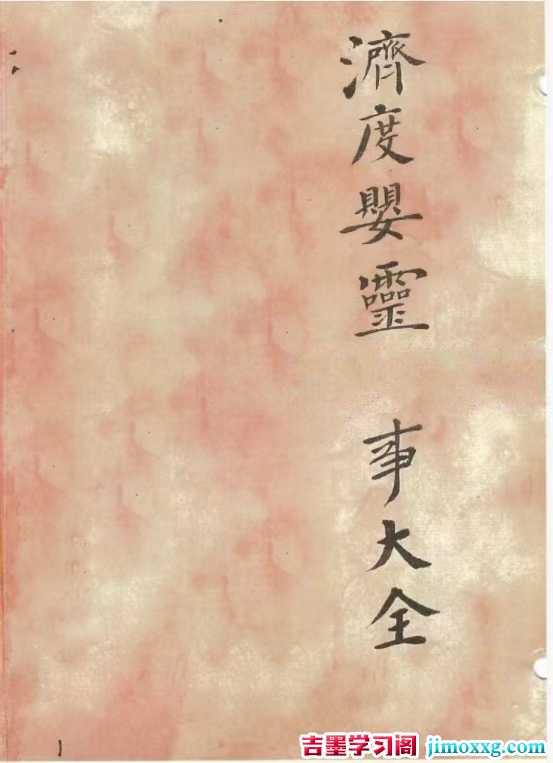 濟度嬰靈 事大全
吉墨学习阁 jimoxxg.com